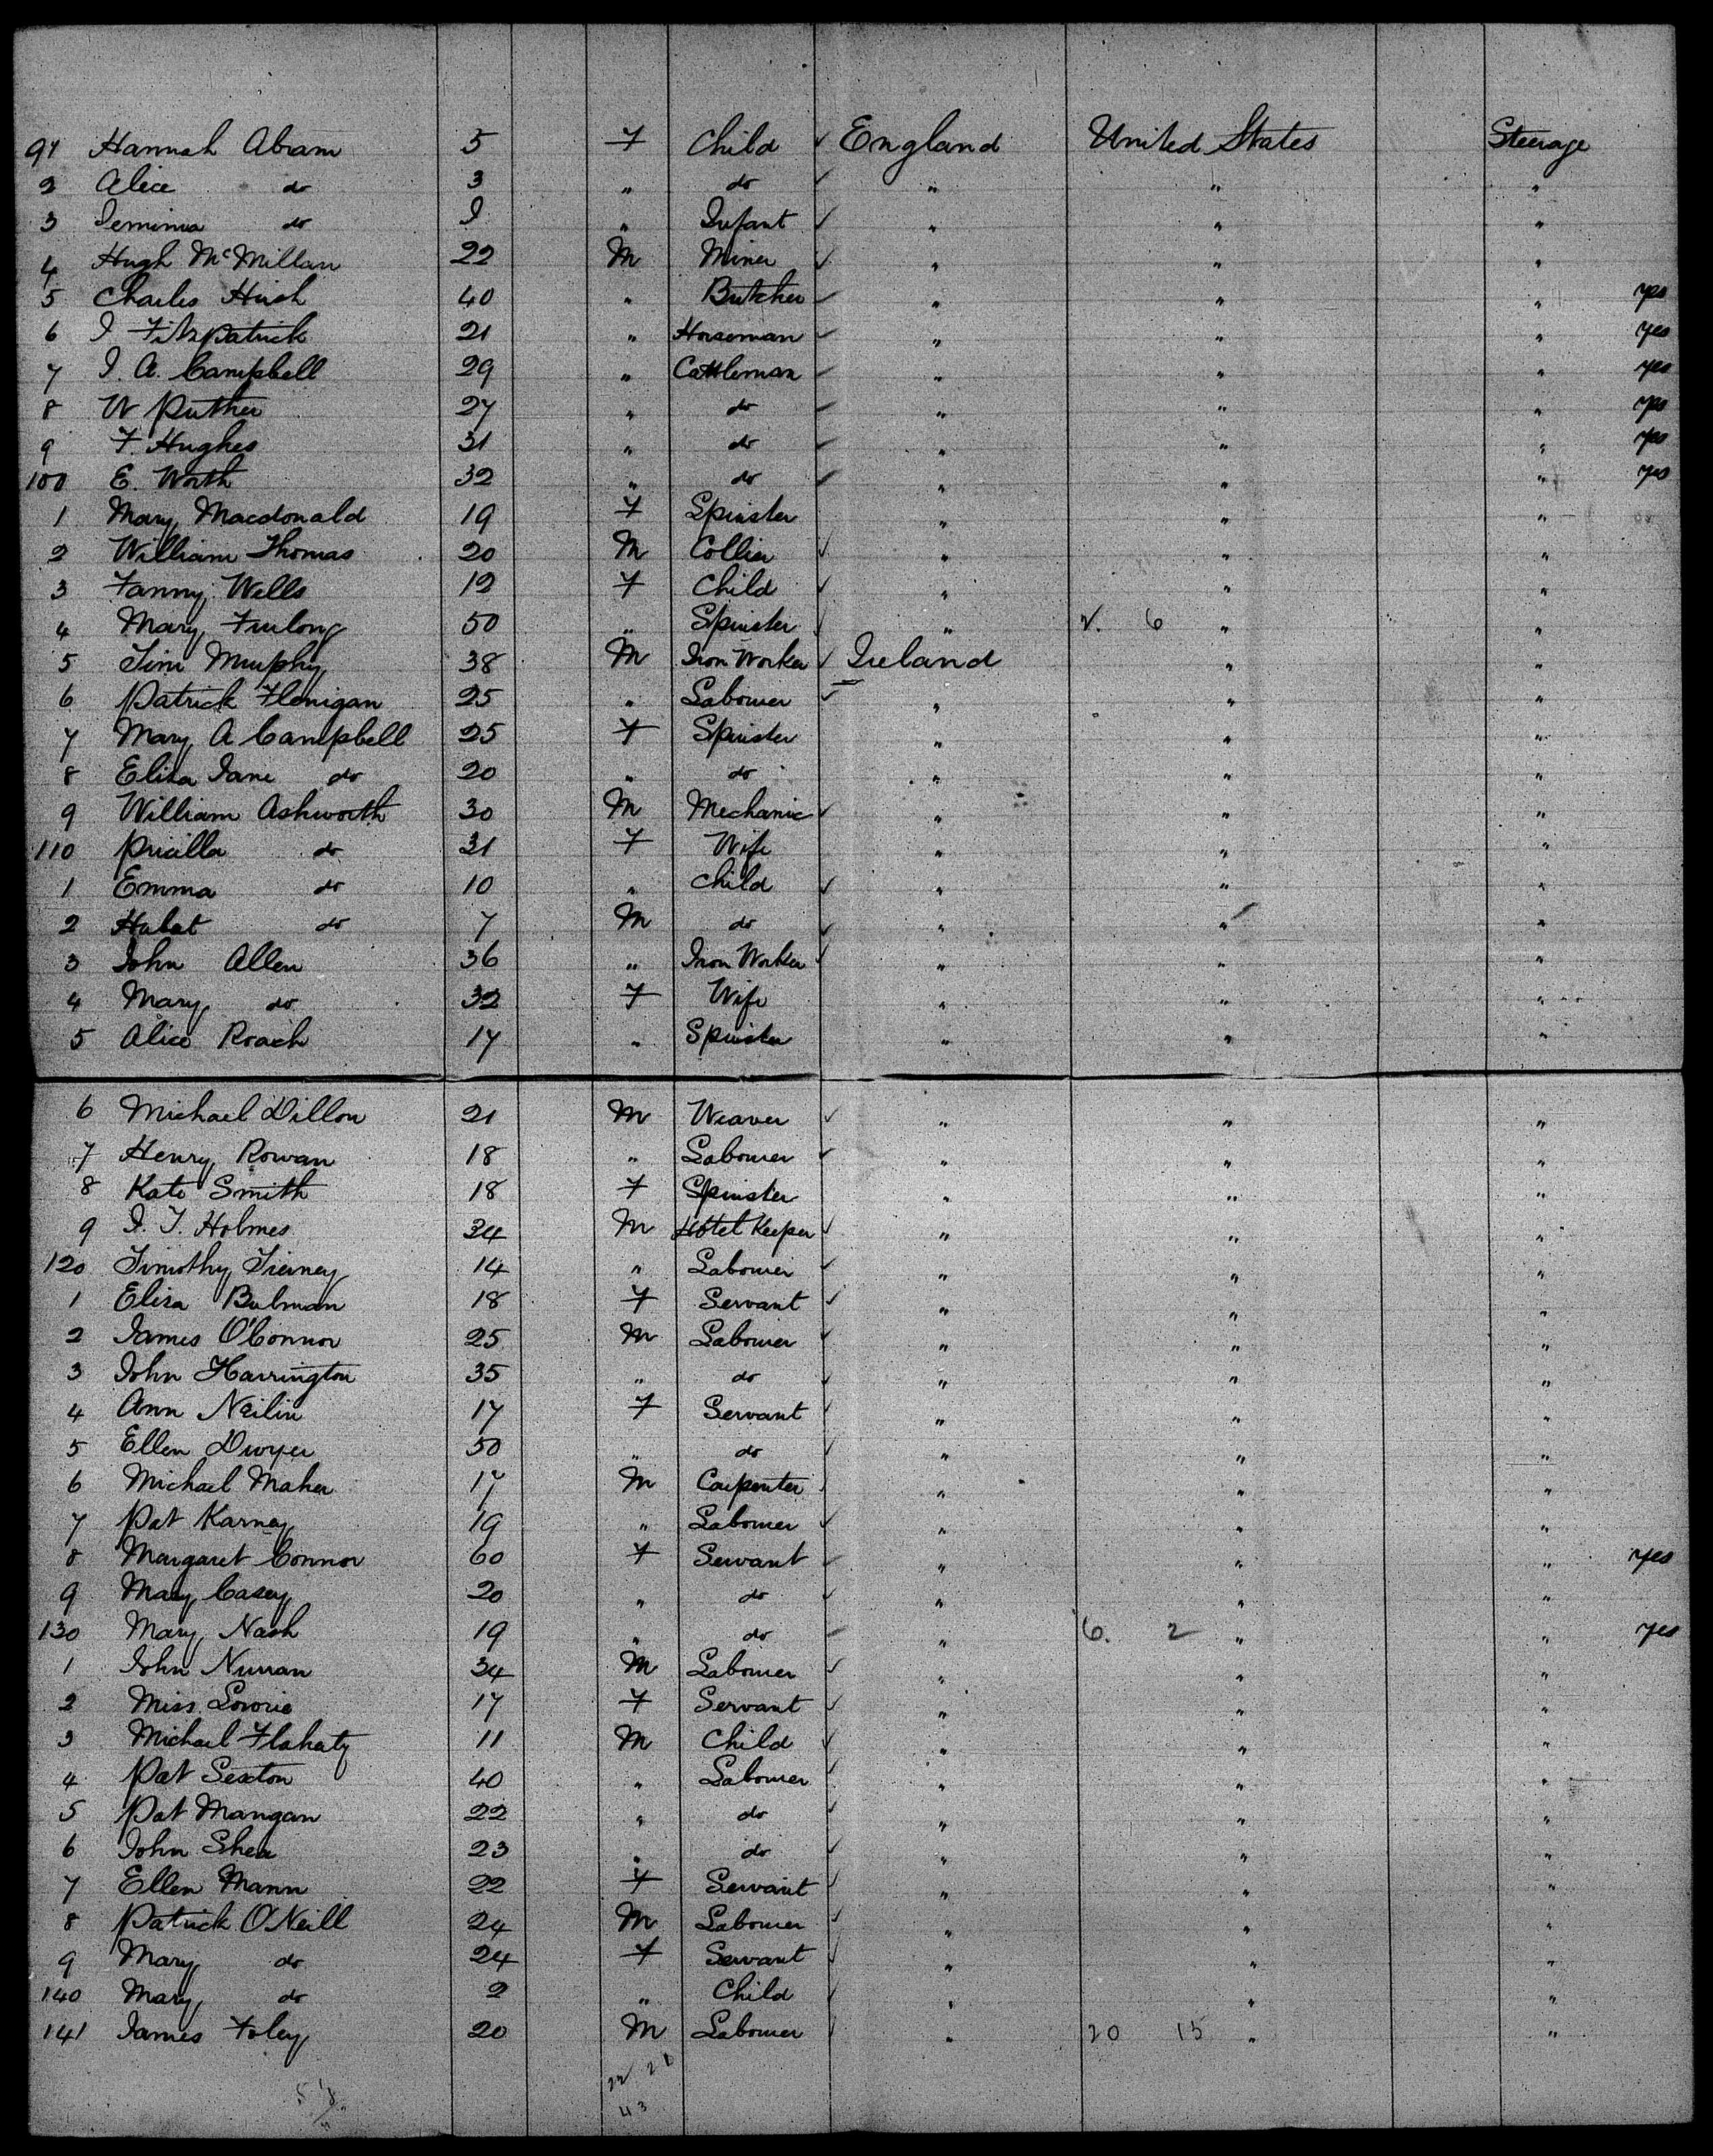 91 Hannah Abram 5 F Child ✓ England United States Steerage
2 Alice do 3 " do ✓ " " "
3 Jemima do 1 " Infant ✓ " " "
4 Hugh McMillan 22 M Miner ✓ " " "
5 Charles Hirsh 40 " Butcher ✓ " " " yes
6 J Fitzpatrick 21 " Horseman ✓ " " " yes
7 J. A. Campbell 29 " Cattleman ✓ " " " yes
8 W 27 " do ✓ " " " yes
9 F. Hughes 31 " do ✓ " " " yes
100 E. Worth 32 " do ✓ " " " yes
1 Mary Macdonald 19 F Spinster " " "
2 William Thomas 20 M Collier ✓ " " "
3 Fanny Wells 12 F Child ✓ " " "
4 Mary Furlong 50 " Spinster " 6 " "
5 Tim Murphy 38 M Iron Worker ✓ Ireland " "
6 Patrick Flenigan 25 " Labourer ✓ " " "
7 Mary A Campbell 25 F Spinster " " "
8 Eliza Jane do 20 " do " " "
9 William Ashworth 30 M Mechanic ✓ " " "
110 Pricilla do 31 F Wife " " "
1 Emma do 10 " Child ✓ " " "
2 do 7 M do ✓ " " "
3 John Allen 36 " Iron Worker ✓ " " "
4 Mary do 32 F Wife " " "
5 Alice Roach 17 " Spinster " " "
6 Michael Dillon 21 M Weaver ✓ " " "
7 Henry Rowan 18 " Labourer ✓ " " "
8 Kate Smith 18 F Spinster " " "
9 J. T. Holmes 34 M Hotel Keeper ✓ " " "
120 Timothy Tierney 14 " Labourer ✓ " " "
1 Eliza Bulman 18 F Servant ✓ " " "
2 James O'Connor 25 M Labourer ✓ " " "
3 John Harrington 35 " do ✓ " " "
4 Ann Neilin 17 F Servant ✓ " " "
5 Ellen Dwyer 50 " do ✓ " " "
6 Michael Maher 17 M Carpenter ✓ " " "
7 Pat Karney 19 " Labourer ✓ " " "
8 Margaret Connor 60 F Servant ✓ " " " yes
9 Mary Casey 20 " do ✓ " " "
130 Mary Nash 19 " do ✓ " 6. 2 " " yes
1 John Nurran 34 M Labourer ✓ " " "
2 Miss Lowrie 17 F Servant ✓ " " "
3 Michael Flahaty 11 M Child ✓ " " "
4 Pat Sexton 40 " Labourer ✓ " " "
5 Pat Mangan 22 " do ✓ " " "
6 John Shea 23 " do ✓ " " "
7 Ellen Mann 22 F Servant ✓ " " "
8 Patrick O'Neill 24 M Labourer ✓ " " "
9 Mary do 24 F Servant ✓ " " "
140 Mary do 2 " Child ✓ " " "
141 James Foley 20 M Labourer ✓ " 20 15 " "
43